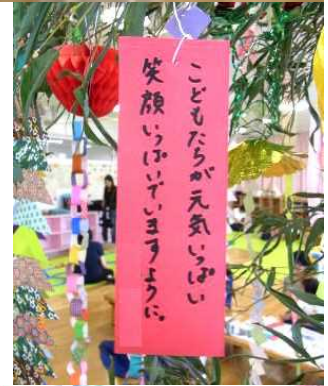 こどもたちが元気いっぱい
笑顔いっぱいでいますように。